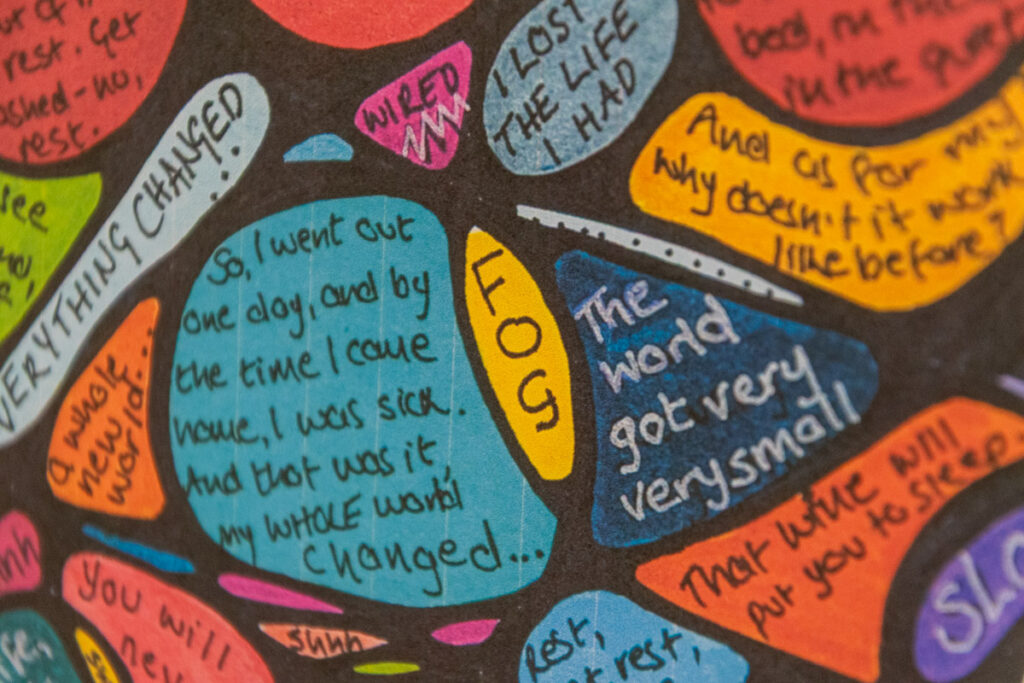 rest. Get
rest.
bed, in the
in the quiet
WIRED
I LOST
THE LIFE
I HAD
EVERYTHING CHANGED...
And as for my
why doesn't it work
like before?
see
So, I went out
one day, and by
the time I came
home, I was sick.
And that was it,
my WHOLE world
changed...
FOG
The
world
got very
very small
a whole
new
world...
That wine will
put you to sleep.
You will
shhh
rest,
rest,